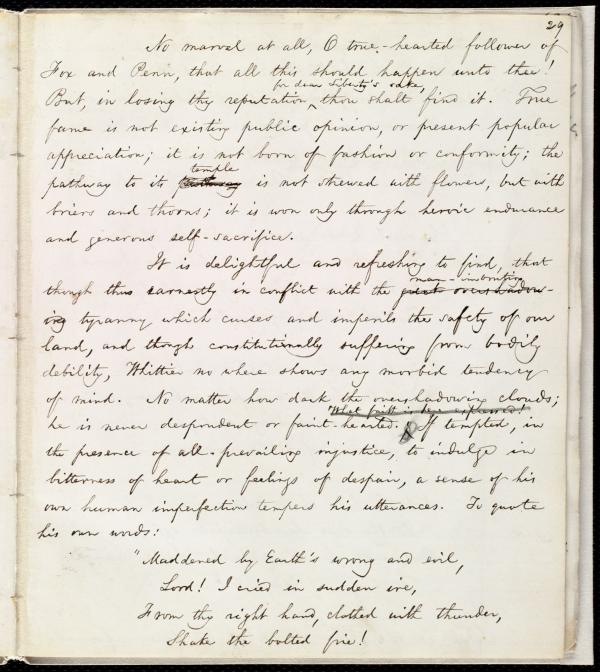 29
No marvel at all, O true-hearted follower of
Fox and Penn, that all this should happen unto thee!
for dear Liberty's sake,
But, in losing thy reputation, thou shalt find it. True
fame is not existing public opinion, or present popular
appreciation; it is not born of fashion or conformity; the
temple
pathway to its is not strewed with flowers, but with
briers and thorns; it is won only through heroic endurance
and generous self-sacrifice.
It is delightful and refreshing to find, that
man-imbruting
though thus earnestly in conflict with the great overshadow-
ing tyranny which curses and imperils the safety of our
land, and though constitutionally suffering from bodily
debility, Whittier no where shows any morbid tendency
of mind. No matter how dark the overshadowing clouds;
What faith is here expressed!
he is never despondent or faint-hearted. If tempted, in
the presence of all-prevailing injustice, to indulge in
bitterness of heart or feelings of despair, a sense of his
own human imperfection tempers his utterances. To quote
his own words:
"Maddened by Earth's wrong and evil,
Lord! I cried in sudden ire,
From thy right hand, clothed with thunder,
Shake the bolted fire!